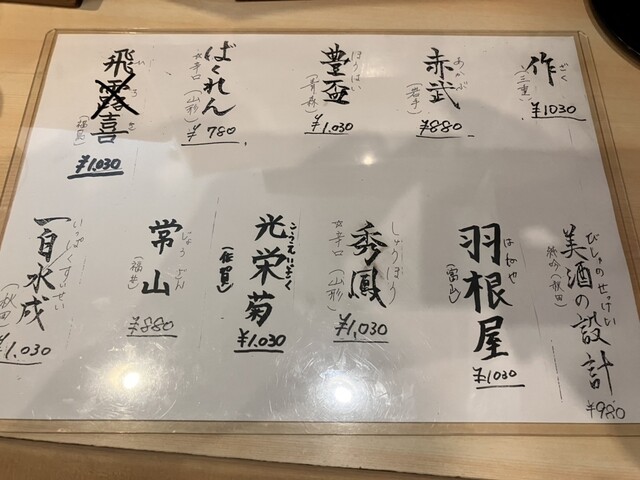 作
ざく
(三重)
¥1030
赤武
あかぶ
(岩手)
¥880
豊盃
ほうはい
(青森)
¥1,030
ばくれん
(山形)
¥780
飛露喜
ひろき
(福島)
¥1,030
美酒の設計
びしゅのせっけい
純吟(秋田)
¥980
羽根屋
はねや
(富山)
¥1030
秀鳳
しゅうほう
(山形)
¥1,030
光栄菊
こうえいぎく
(佐賀)
¥1,030
常山
じょうざん
(福井)
¥880
一白水成
いっぱくすいせい
(秋田)
¥1,030